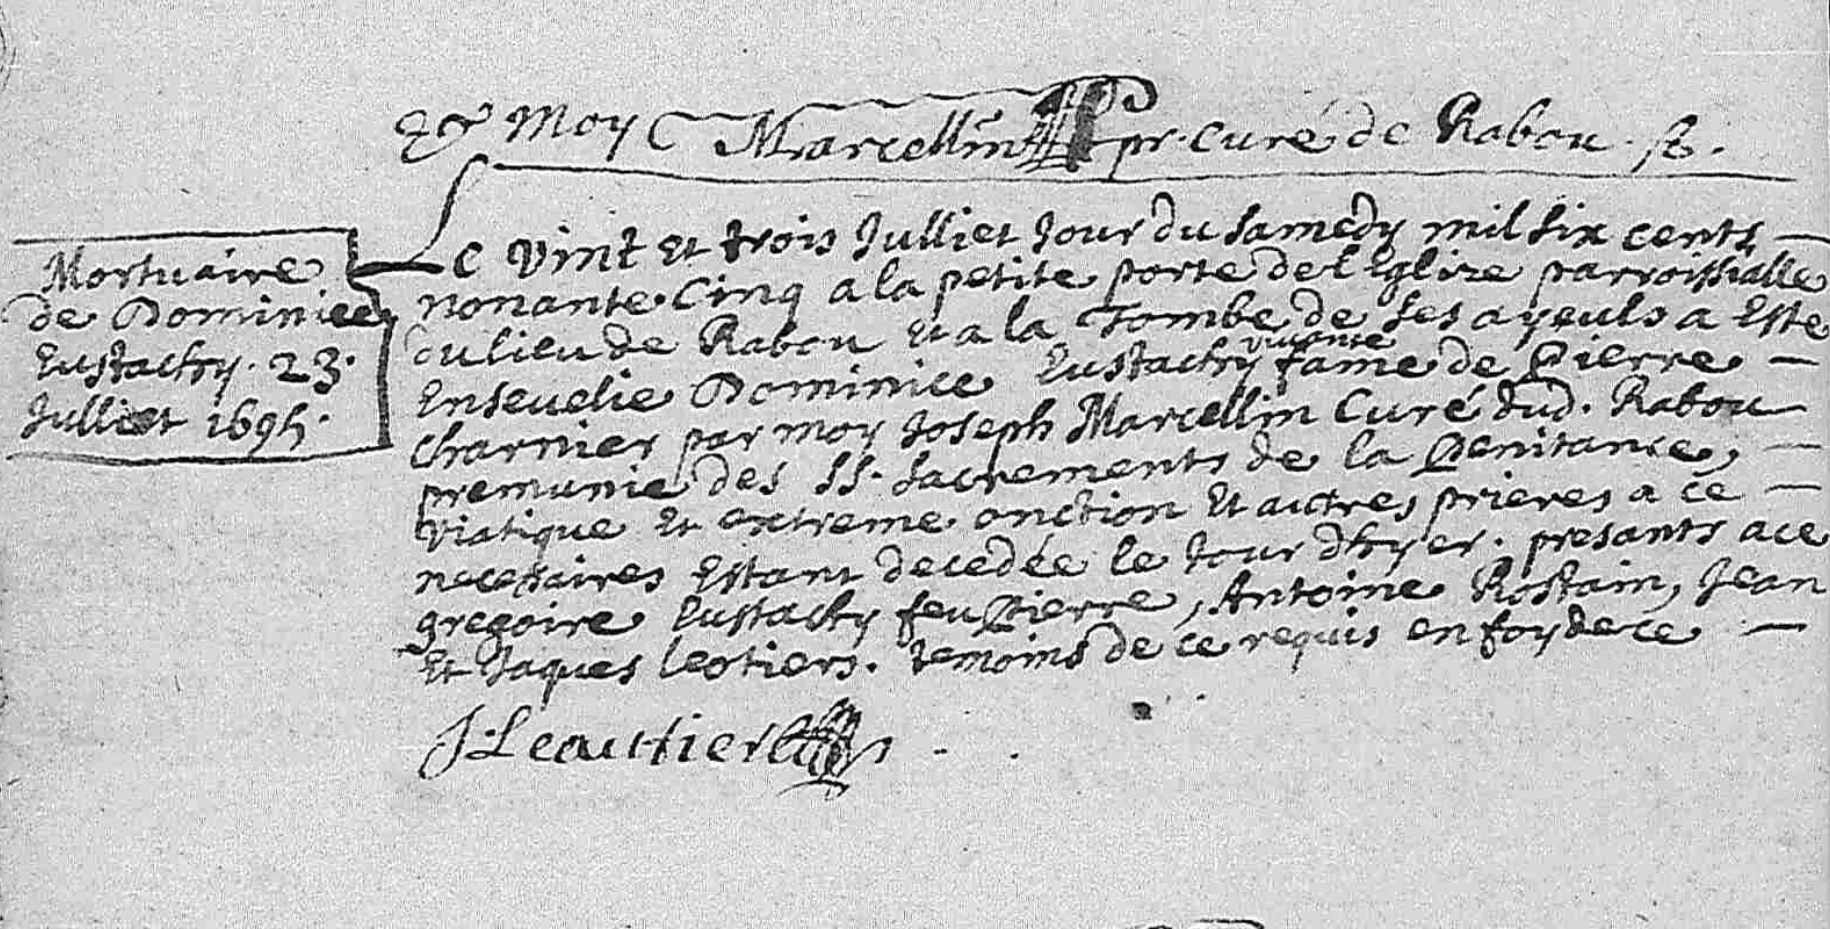 & Moy Marcellin pr. Curé de Rabou
Mortuaire
de Dominice
Eustachy. 23.
Julliet 1695.
Le vint et trois Julliet Jour du samedy mil six cents
nonante. Cinq a la petite porte de l Eglize parroissialle
du lieu de Rabou et a la Tombe de ses ayeuls a Este
vivante
Enseuelie Dominice Eustachy fame de Pierre
Charnier par moy Joseph Marcellin Curé dud. Rabou
premunie des SS. Sacrements de la Penitance,
viatique et extreme onction et autres prieres a ce
necessaires Estant decedée le Jour d'hyer. presants a ce
gregoire Eustachy feu Pierre, Antoine Rostain, Jean
et Jaques leotiers. temoins de ce requis en foy de ce
J. Leautier